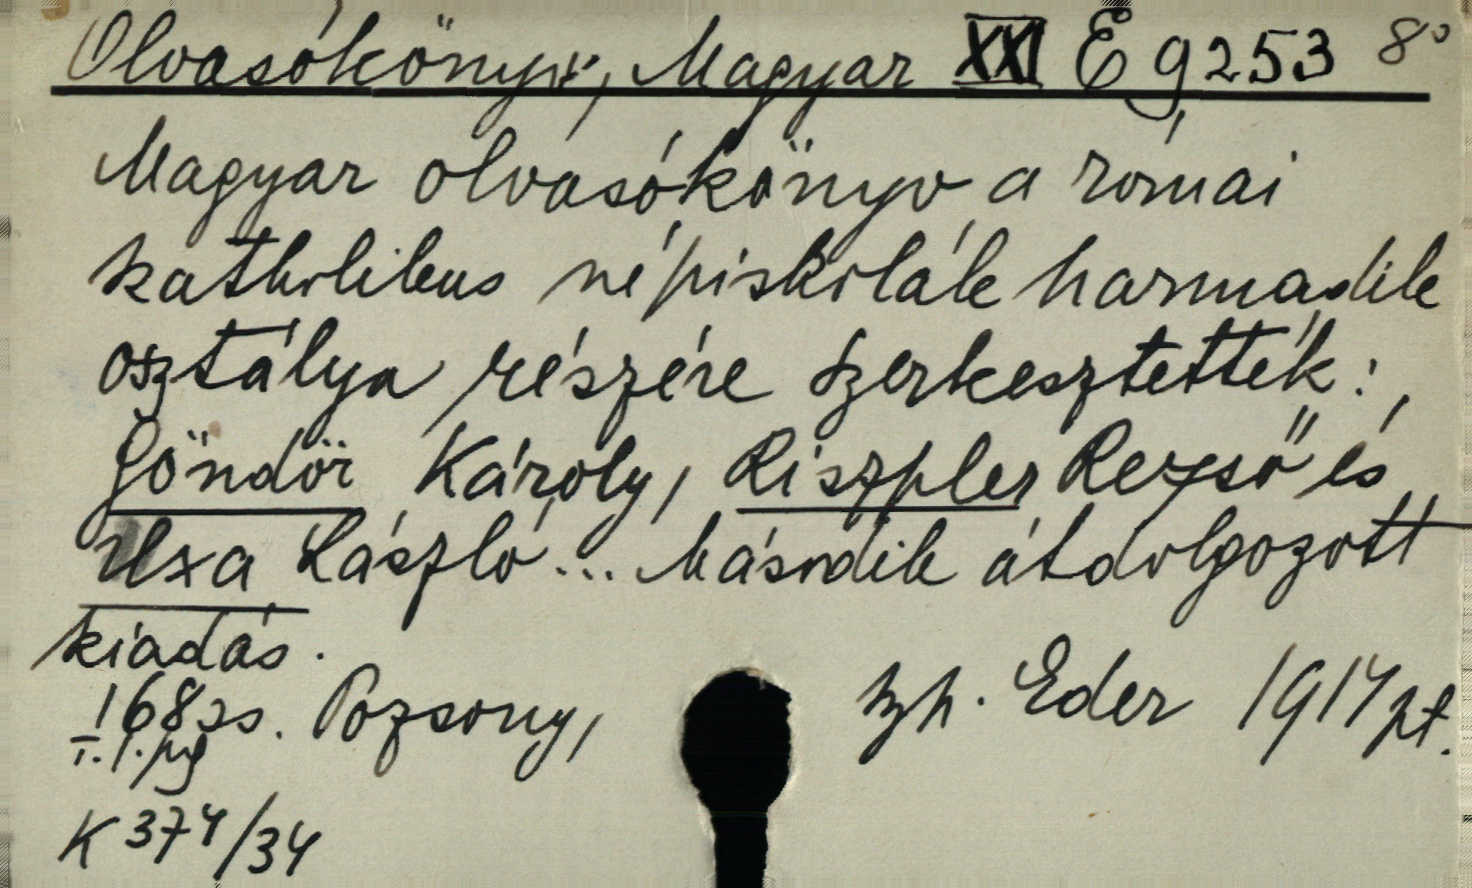 Olvasókönyv, Magyar XXI E 9253 8°
Magyar olvasókönyv a római
katholikus népiskolák harmadik
osztálya részére szerkesztették:
Göndör Károly, Riszpler Rezső és
Uxa László... Második átdolgozott
kiadás.
168 ss. Pozsony, Szh. Eder 1914 pt.
K 374/34